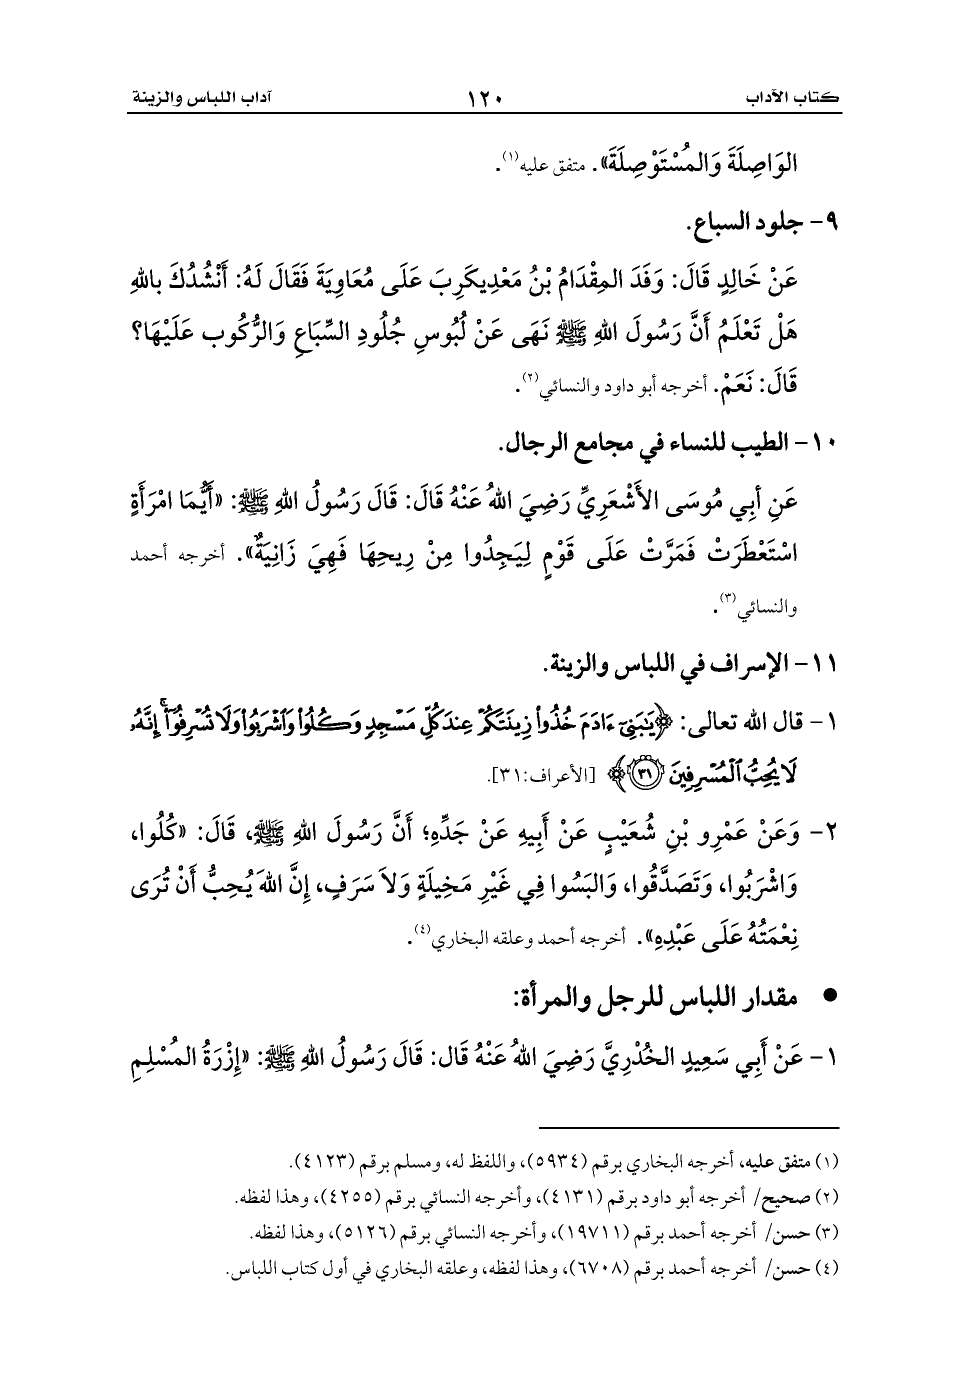 كتاب الآداب ١٢٠ آداب اللباس والزينة
الوَاصِلَةَ وَالمُسْتَوْصِلَةَ». متفق عليه(١).
٩- جلود السباع.
عَنْ خَالِدٍ قَالَ: وَفَدَ المِقْدَامُ بْنُ مَعْدِيكَرِبَ عَلَى مُعَاوِيَةَ فَقَالَ لَهُ: أَنْشُدُكَ بِاللهِ
هَلْ تَعْلَمُ أَنَّ رَسُولَ اللهِ ﷺ نَهَى عَنْ لُبُوسِ جُلُودِ السِّبَاعِ وَالرُّكُوبِ عَلَيْهَا؟
قَالَ: نَعَمْ. أخرجه أبو داود والنسائي(٢).
١٠- الطيب للنساء في مجامع الرجال.
عَنِ أَبِي مُوسَى الأَشْعَرِيِّ رَضِيَ اللهُ عَنْهُ قَالَ: قَالَ رَسُولُ اللهِ ﷺ: «أَيُّمَا امْرَأَةٍ
اسْتَعْطَرَتْ فَمَرَّتْ عَلَى قَوْمٍ لِيَجِدُوا مِنْ رِيحِهَا فَهِيَ زَانِيَةٌ». أخرجه أحمد
والنسائي(٣).
١١- الإسراف في اللباس والزينة.
١- قال الله تعالى: ﴿يَٰبَنِيٓ ءَادَمَ خُذُواْ زِينَتَكُمۡ عِندَ كُلِّ مَسۡجِدٖ وَكُلُواْ وَٱشۡرَبُواْ وَلَا تُسۡرِفُوٓاْۚ إِنَّهُۥ
لَا يُحِبُّ ٱلۡمُسۡرِفِينَ ٣١﴾ [الأعراف:٣١].
٢- وَعَنْ عَمْرِو بْنِ شُعَيْبٍ عَنْ أَبِيهِ عَنْ جَدِّهِ؛ أَنَّ رَسُولَ اللهِ ﷺ، قَالَ: «كُلُوا،
وَاشْرَبُوا، وَتَصَدَّقُوا، وَالبَسُوا فِي غَيْرِ مَخِيلَةٍ وَلاَ سَرَفٍ، إِنَّ اللهَ يُحِبُّ أَنْ تُرَى
نِعْمَتُهُ عَلَى عَبْدِهِ». أخرجه أحمد وعلقه البخاري(٤).
● مقدار اللباس للرجل والمرأة:
١- عَنْ أَبِي سَعِيدٍ الخُدْرِيَّ رَضِيَ اللهُ عَنْهُ قَال: قَالَ رَسُولُ اللهِ ﷺ: «إِزْرَةُ المُسْلِمِ
(١) متفق عليه، أخرجه البخاري برقم (٥٩٣٤)، واللفظ له، ومسلم برقم (٤١٢٣).
(٢) صحيح/ أخرجه أبو داود برقم (٤١٣١)، وأخرجه النسائي برقم (٤٢٥٥)، وهذا لفظه.
(٣) حسن/ أخرجه أحمد برقم (١٩٧١١)، وأخرجه النسائي برقم (٥١٢٦)، وهذا لفظه.
(٤) حسن/ أخرجه أحمد برقم (٦٧٠٨)، وهذا لفظه، وعلقه البخاري في أول كتاب اللباس.